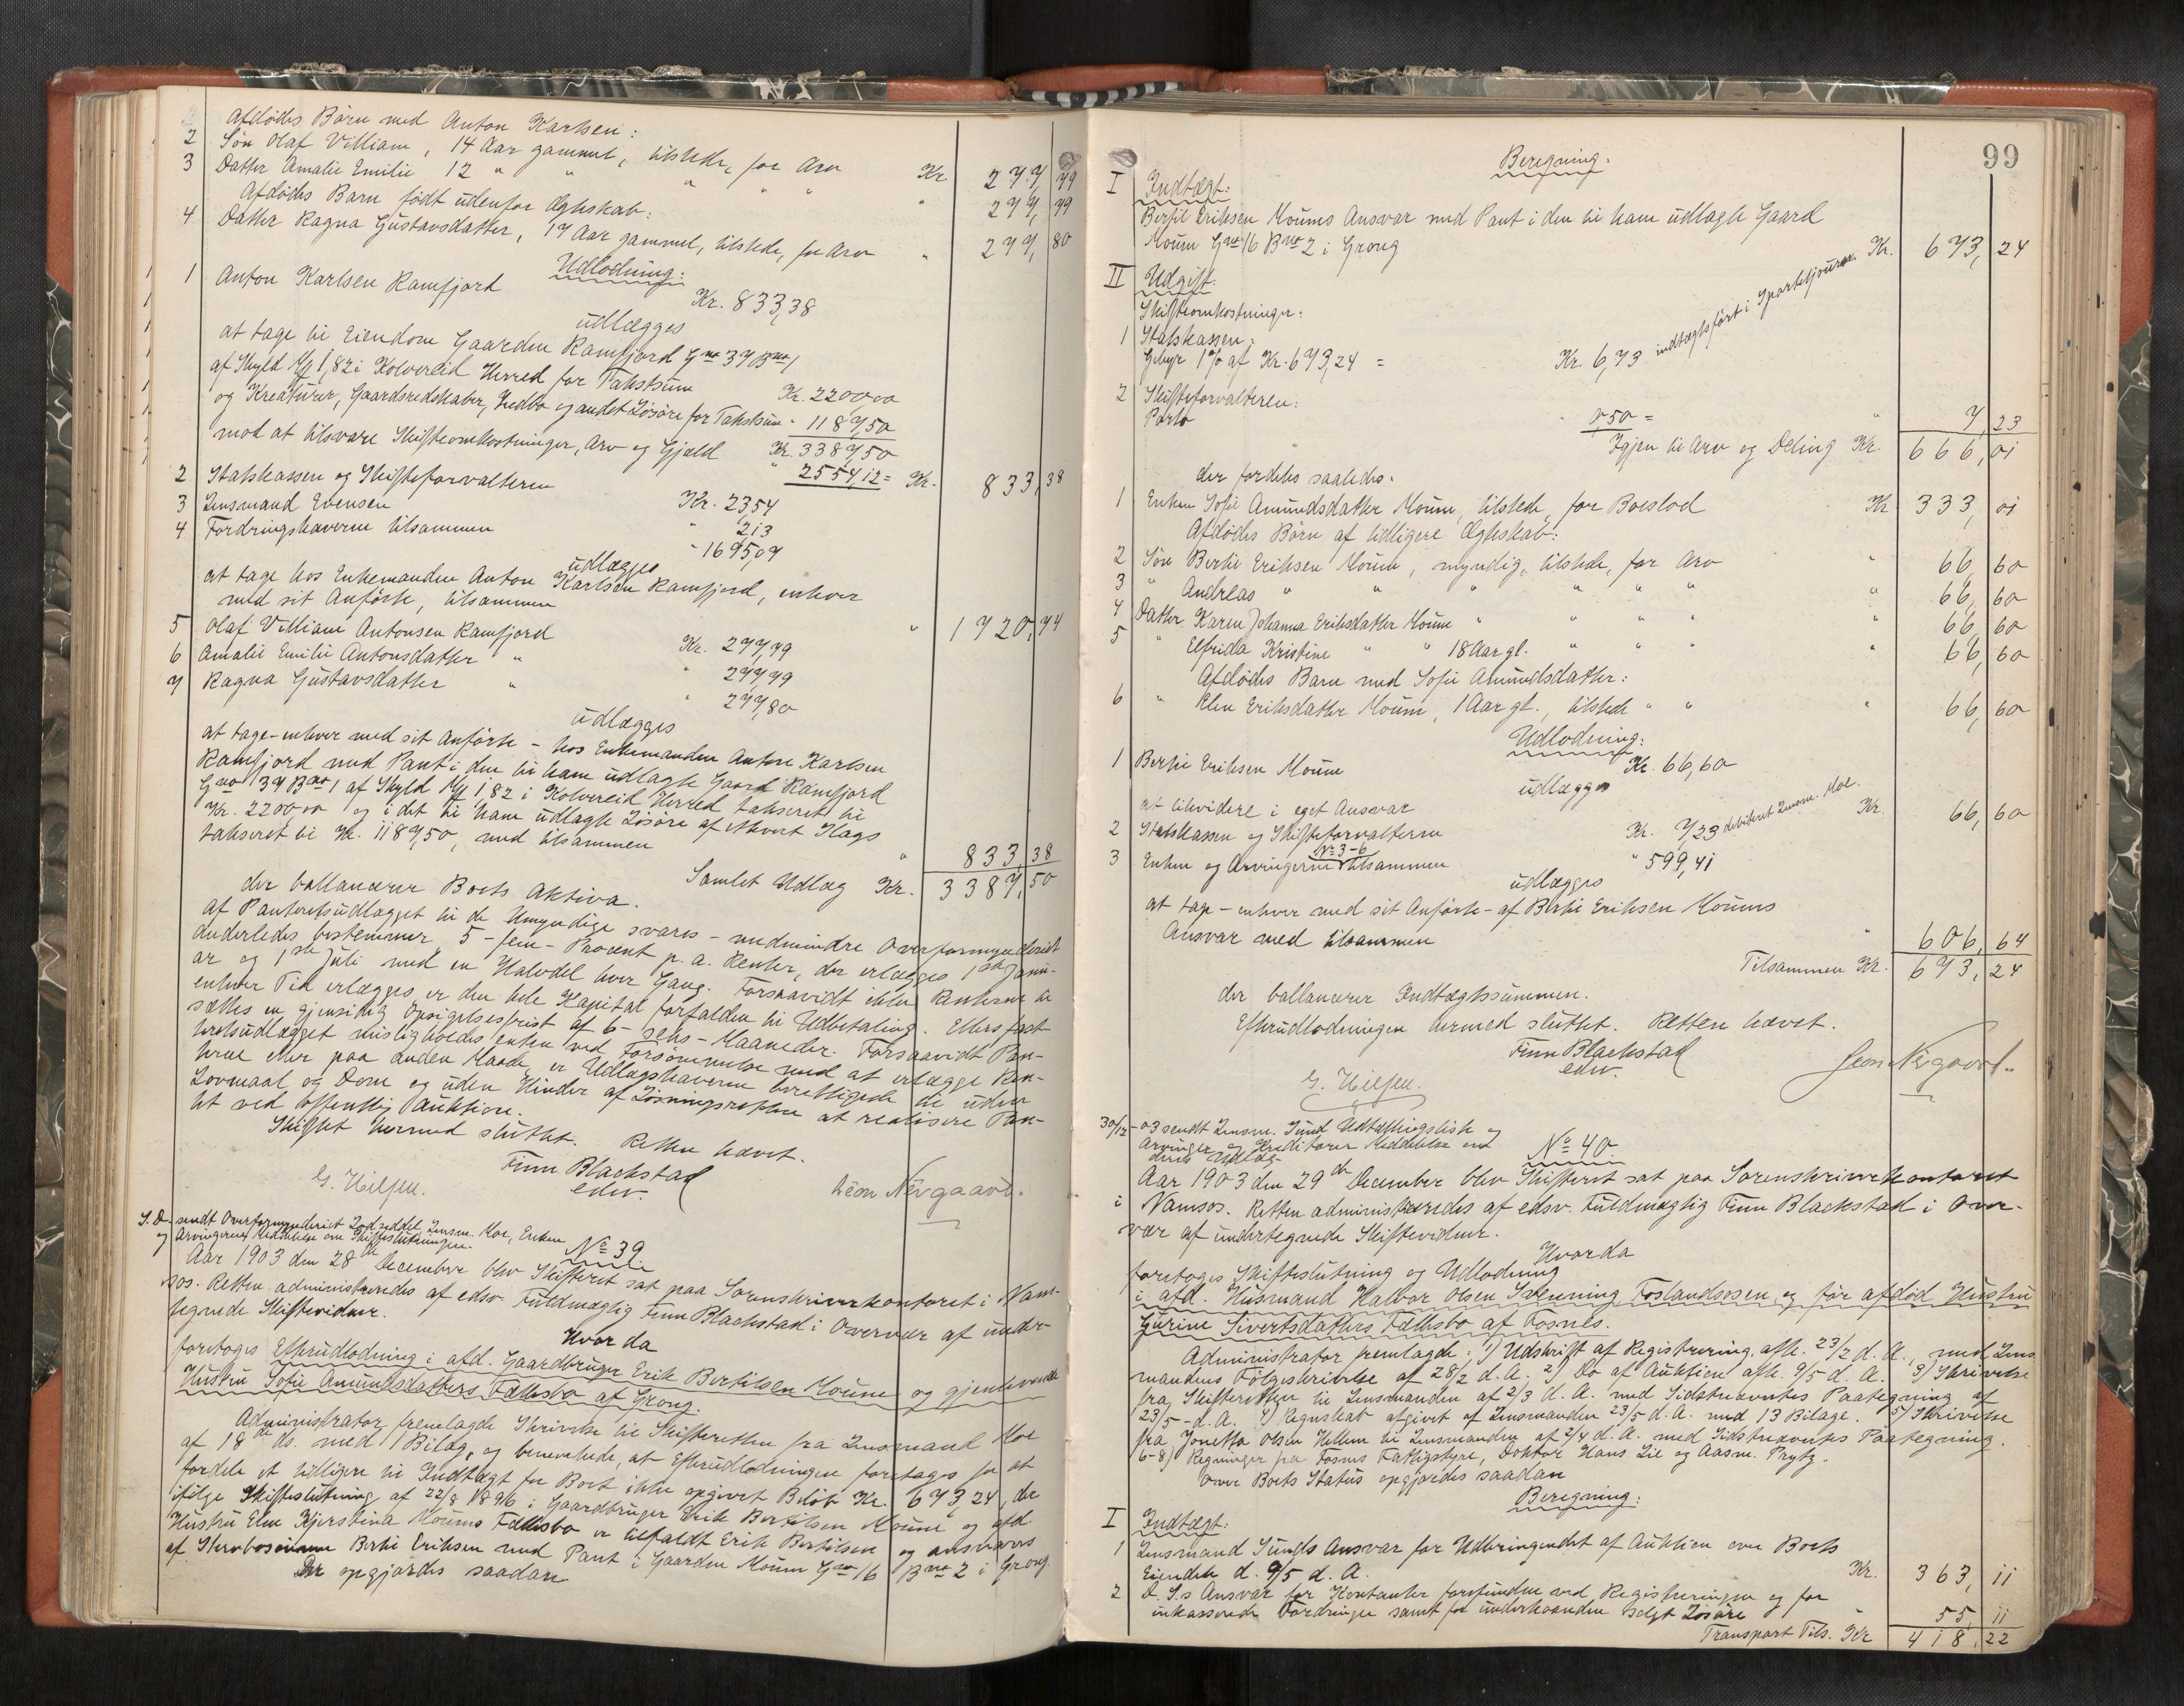 Afdødes Børn med Anton Karlsen:
2 Søn Olaf Villiam, 14 Aar gammel, tilstede, for Arv Kr. 277,79
3 Datter Amalie Emilie 12 " " " " " " 277,79
Afdødes Barn født udenfor Ægteskab:
4 Datter Ragna Gustavsdatter, 17 Aar gammel, tilstede, for Arv " 277,80
Udlodning:
1 Anton Karlsen Ramfjord Kr. 833,38
udlægges
at tage til Eiendom Gaarden Ramfjord Gno 37 Bno 1
af Skyld M/ 1,82 i Kolvereid Herred for Takstsum Kr. 2200,00
og Kreaturer, Gaardsredskaber, Indbo og andet Løsøre for Takstsum " 1187,50
Kr. 3387,50
mod at tilsvare Skifteomkostninger, Arv og Gjæld " 2554,12 = Kr. 833,38
2 Statskassen og Skifteforvalteren Kr. 23,54
3 Lensmand Evensen " 2,13
4 Fordringshaverne tilsammen " 1695,07
udlægges
at tage hos Enkemanden Anton Karlsen Ramfjord, enhver
med sit Anførte, tilsammen " 1720,74
5 Olaf Villiam Antonsen Ramfjord Kr. 277,79
6 Amalie Emilie Antonsdatter " " 277,79
7 Ragna Gustavsdatter " " 277,80
udlægges
at tage - enhver med sit Anførte - hos Enkemanden Anton Karlsen
Ramfjord med Pant i den til ham udlagte Gaard Ramfjord
Gno 37 Bno 1 af Skyld M/ 1,82 i Kolvereid Herred takseret til
Kr. 2200,00 og i det til ham udlagte Løsøre af ethvert Slags
takseret til Kr. 1187,50, med tilsammen " 833,38
Samlet Udlæg Kr. 3387,50
der ballancerer Boets Aktiva.
Af Panteretsudlægget til de Umyndige svares - medmindre Overformynderiet
anderledes bestemmer 5 - fem - Procent p. a. Renter, der erlægges 1ste Janu-
ar og 1ste Juli med en Halvdel hver Gang. Forsaavidt ikke Renterne til
enhver Tid erlægges er den hele Kapital forfalden til Udbetaling. Ellers fast-
sættes en gjensidig Opsigelsesfrist af 6 - seks - Maaneder. Forsaavidt Pan-
teretsudlægget misligholdes enten ved Forsømmelse med at erlægge Ren-
terne eller paa anden Maade, er Udlægshaverne berettigede til uden
Lovmaal og Dom og uden Hinder af Løsningsretten at realisere Pan-
tet ved offentlig Auktion.
Skiftet hermed sluttet. Retten hævet.
Finn Blackstad
edsv.
G. Hilsen. Leon Nergaard.
S. D. sendt Overformynderiet Lodseddel, Lensm. Moe, Enken
og Arvingerne Meddelelse om Skifteslutningen.
No 39
Aar 1903 den 28de December blev Skifteret sat paa Sorenskriverkontoret i Nam-
sos. Retten administreredes af edsv. Fuldmægtig Finn Blackstad i Overvær af under-
tegnede Skiftevidner.
Hvor da
foretoges Efterudlodning i afd. Gaardbruger Erik Bertilsen Moum og gjenlevende
Hustru Sofie Amundsdatters Fællesbo af Grong.
Administrator fremlagde Skrivelse til Skifteretten fra Lensmand Moe
af 18de ds. med 1 Bilag, og bemerkede, at Efterudlodningen foretages for at
fordele et tidligere til Indtægt for Boet ikke opgivet Beløb Kr. 673,24, der
ifølge Skifteslutning af 22/8 1896 i Gaardbruger Erik Bertilsen Moum og afd.
Hustru Elen Kjerstina Moums Fællesbo er tilfaldt Erik Bertilsen og ansvares
af Stervbosønnen Bertil Eriksen med Pant i Gaarden Moum Gno 16 Bno 2 i Grong.
Der opgjordes saadan
99
Beregning.
I Indtægt:
Bertil Eriksen Moums Ansvar med Pant i den til ham udlagte Gaard
Moum Gno 16 Bno 2 i Grong Kr. 673,24
II Udgift:
Skifteomkostninger:
1 Statskassen:
Gebyr 1% af Kr. 673,24 = Kr. 6,73 indtægtsført i Sportelsjournalen.
2 Skifteforvalteren:
Porto " 0,50 = " 7,23
Igjen til Arv og Deling Kr. 666,01
der fordeles saaledes.
1 Enken Sofie Amundsdatter Moum, tilstede, for Boeslod Kr. 333,01
Afdødes Børn af tidligere Ægteskab:
2 Søn Bertil Eriksen Moum, myndig, tilstede, for Arv " 66,60
3 " Andreas " " " " " " " 66,60
4 Datter Karen Johanna Eriksdatter Moum " " " " " 66,60
5 " Elfrida Kristine " " 18 Aar gl. " " " " 66,60
Afdødes Barn med Sofie Amundsdatter:
6 " Elen Eriksdatter Moum, 1 Aar gl., tilstede " " " 66,60
Udlodning:
1 Bertil Eriksen Moum Kr. 66,60
udlægges
at likvidere i eget Ansvar Kr. 66,60
2 Statskassen og Skifteforvalteren Kr. 7,23 debiteret Lensm. Moe.
3 Enken og Arvingerne No 3-6 tilsammen " 599,41
udlægges
at tage - enhver med sit Anførte - af Bertil Eriksen Moums
Ansvar med tilsammen " 606,64
Tilsammen Kr. 673,24
der ballancerer Indtægtssummen.
Efterudlodningen hermed sluttet. Retten hævet.
Finn Blackstad
edsv.
G. Hilsen. Leon Nergaard.
30/12-03 sendt Lensm. Sund Udtællingsliste og
Arvinger og Kreditorer Meddelelse om
deres Udlæg.
No 40.
Aar 1903 den 29de December blev Skifteret sat paa Sorenskriverkontoret
i Namsos. Retten administreredes af edsv. Fuldmægtig Finn Blackstad i Over-
vær af undertegnede Skiftevidner.
Hvor da
foretoges Skifteslutning og Udlodning
i afd. Husmand Halvor Olsen Sætenning Foslandsosen og før afdød Hustru
Gurine Sivertsdatters Fællesbo af Fosnes.
Administrator fremlagde: 1) Udskrift af Registrering afh. 23/2 d. A., med Lens-
mandens Følgeskrivelse af 28/2 d. A. 2) Do af Auktion afh. 9/5 d. A. 3) Skrivelse
fra Skifteretten til Lensmanden af 2/3 d. A. med Sidstnævntes Paategning af
23/5 - d. A. 4) Regnskab afgivet af Lensmanden 23/5 d. A. med 13 Bilage. 5) Skrivelse
fra Jonetta Olsen Hellem til Lensmanden af 2/4 d. A. med Sidstnævntes Paategning.
6-8) Regninger fra Fosnes Fattigstyre, Doktor Hans Lie og Aasm. Prytz.
Over Boets Status opgjordes saadan
Beregning:
I Indtægt:
1 Lensmand Sunds Ansvar for Udbringendet af Auktion over Boets
Eiendele d. 9/5 d. A. Kr. 363,11
2 D. S.s Ansvar for Kontanter forefunden ved Registreringen og for
inkasserede Fordringer samt for underhaanden solgt Løsøre " 55,11
Transport Tils. Kr. 418,22